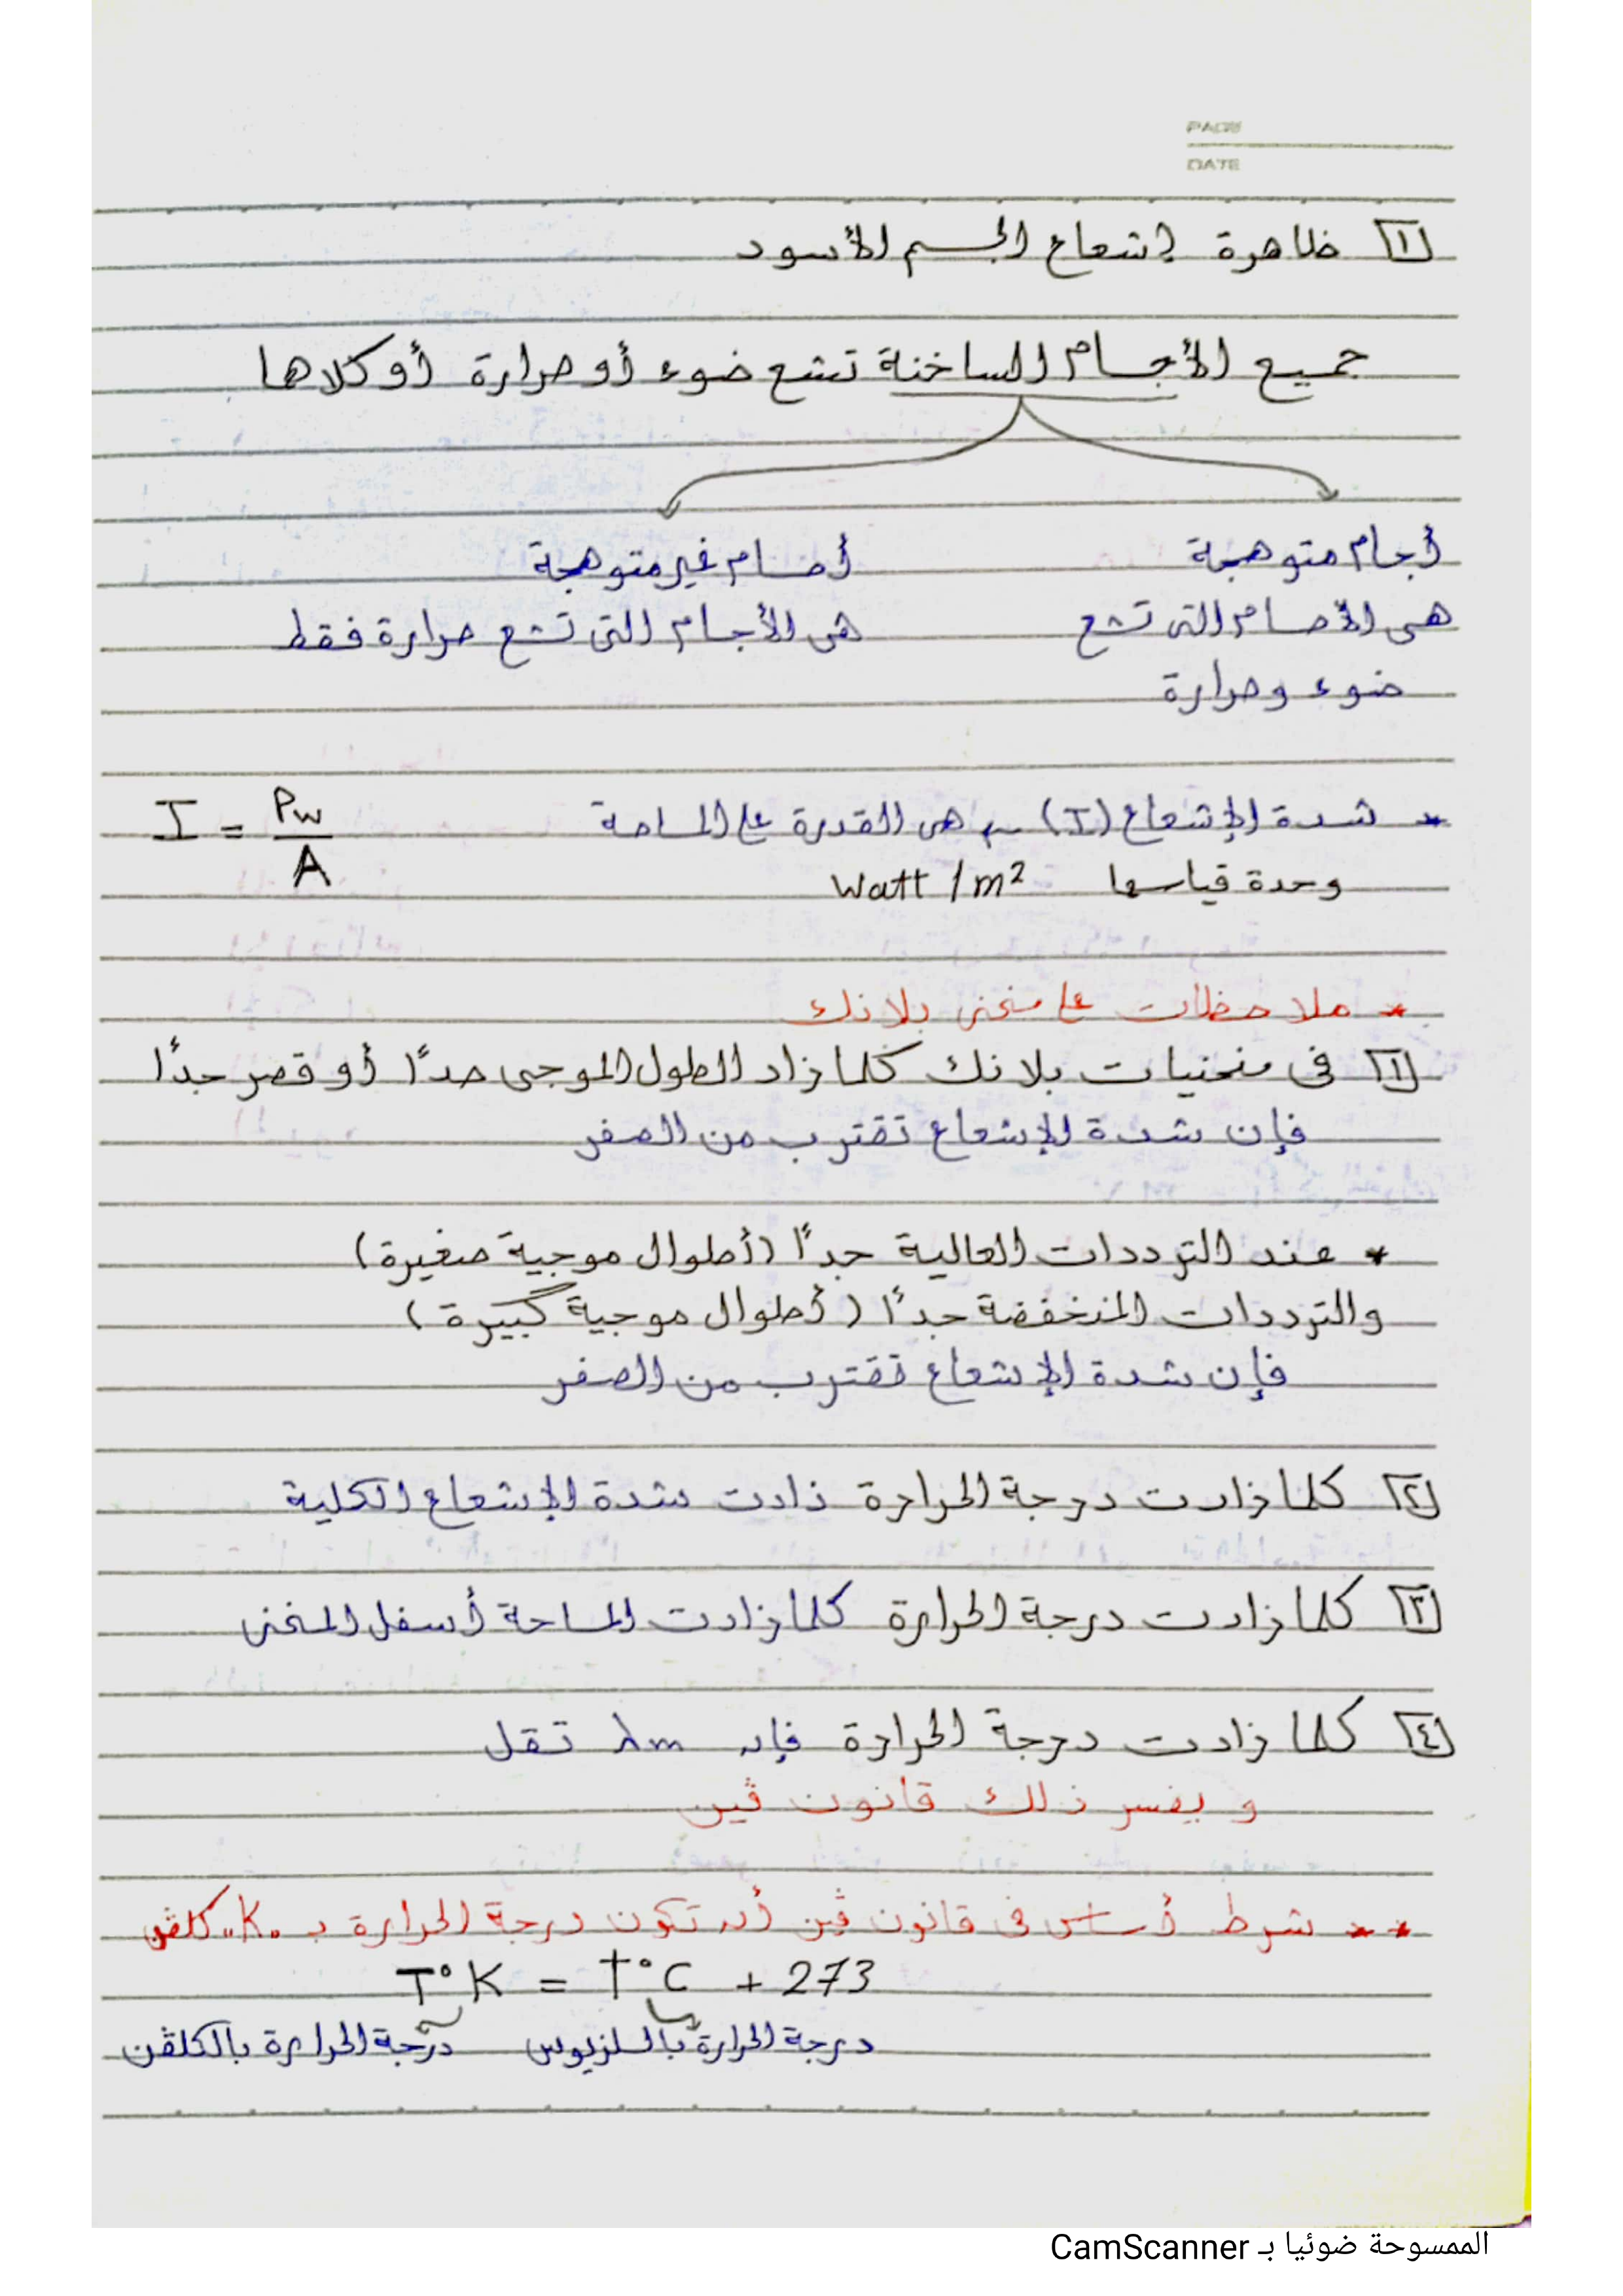 PAGE
DATE
١ ظاهرة إشعاع الجسم الأسود
جميع الأجسام الساخنة تشع ضوء أو حرارة أو كلاها
أجسام متوهجة
أجسام غير متوهجة
هى الأجسام التى تشع
هى الأجسام التى تشع حرارة فقط
ضوء وحرارة
* شدة الإشعاع (I) ← هى القدرة على المساحة I = Pw / A
وحدة قياسها Watt / m²
* ملاحظات على منحنى بلانك
١ فى منحنيات بلانك كلما زاد الطول الموجى جدًا أو قصر جدًا
فإن شدة الإشعاع تقترب من الصفر
* عند الترددات العالية جدًا (أطوال موجية صغيرة)
والترددات المنخفضة جدًا (أطوال موجية كبيرة)
فإن شدة الإشعاع تقترب من الصفر
٢ كلما زادت درجة الحرارة زادت شدة الإشعاع الكلية
٣ كلما زادت درجة الحرارة كلما زادت المساحة أسفل المنحنى
٤ كلما زادت درجة الحرارة فإن λm تقل
ويفسر ذلك قانون ڤين
** شرط أساسى فى قانون ڤين أن تكون درجة الحرارة بـ "K" كلڤن
T°K = t°C + 273
درجة الحرارة بالسلزيوس درجة الحرارة بالكلڤن
الممسوحة ضوئيا بـ CamScanner